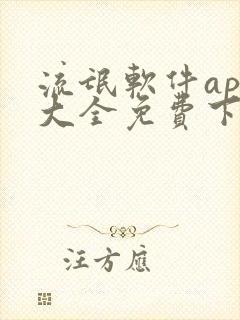 流氓軟件ap
大全免費下
汪方應